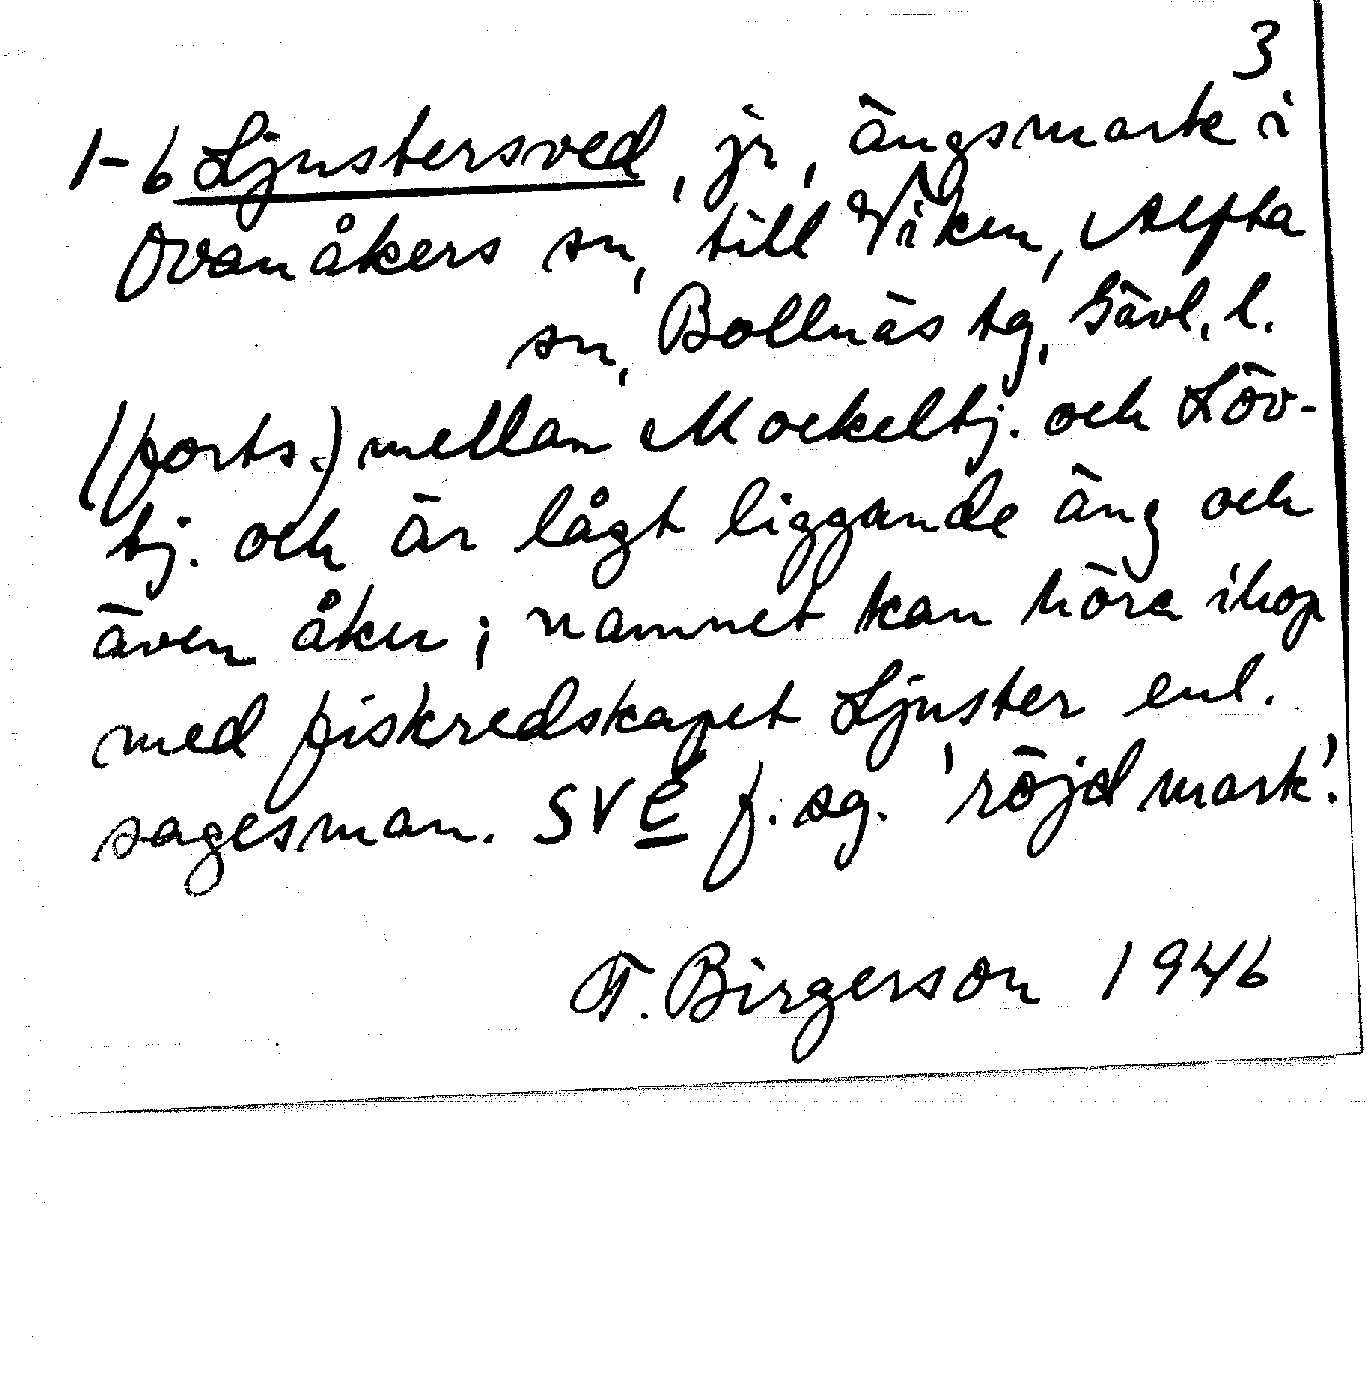 3
1-6 Ljustersved, jr, ängsmark i
Ovanåkers sn, till Viken, Alfta
sn, Bollnäs tg, Gävl. l.
(forts.) mellan Mockeltj. och Löv-
tj. och är lågt liggande äng och
även åker; namnet kan höra ihop
med fiskredskapet Ljuster enl.
sagesman. sve f. sg. 'röjd mark'.
F. Birgerson 1946